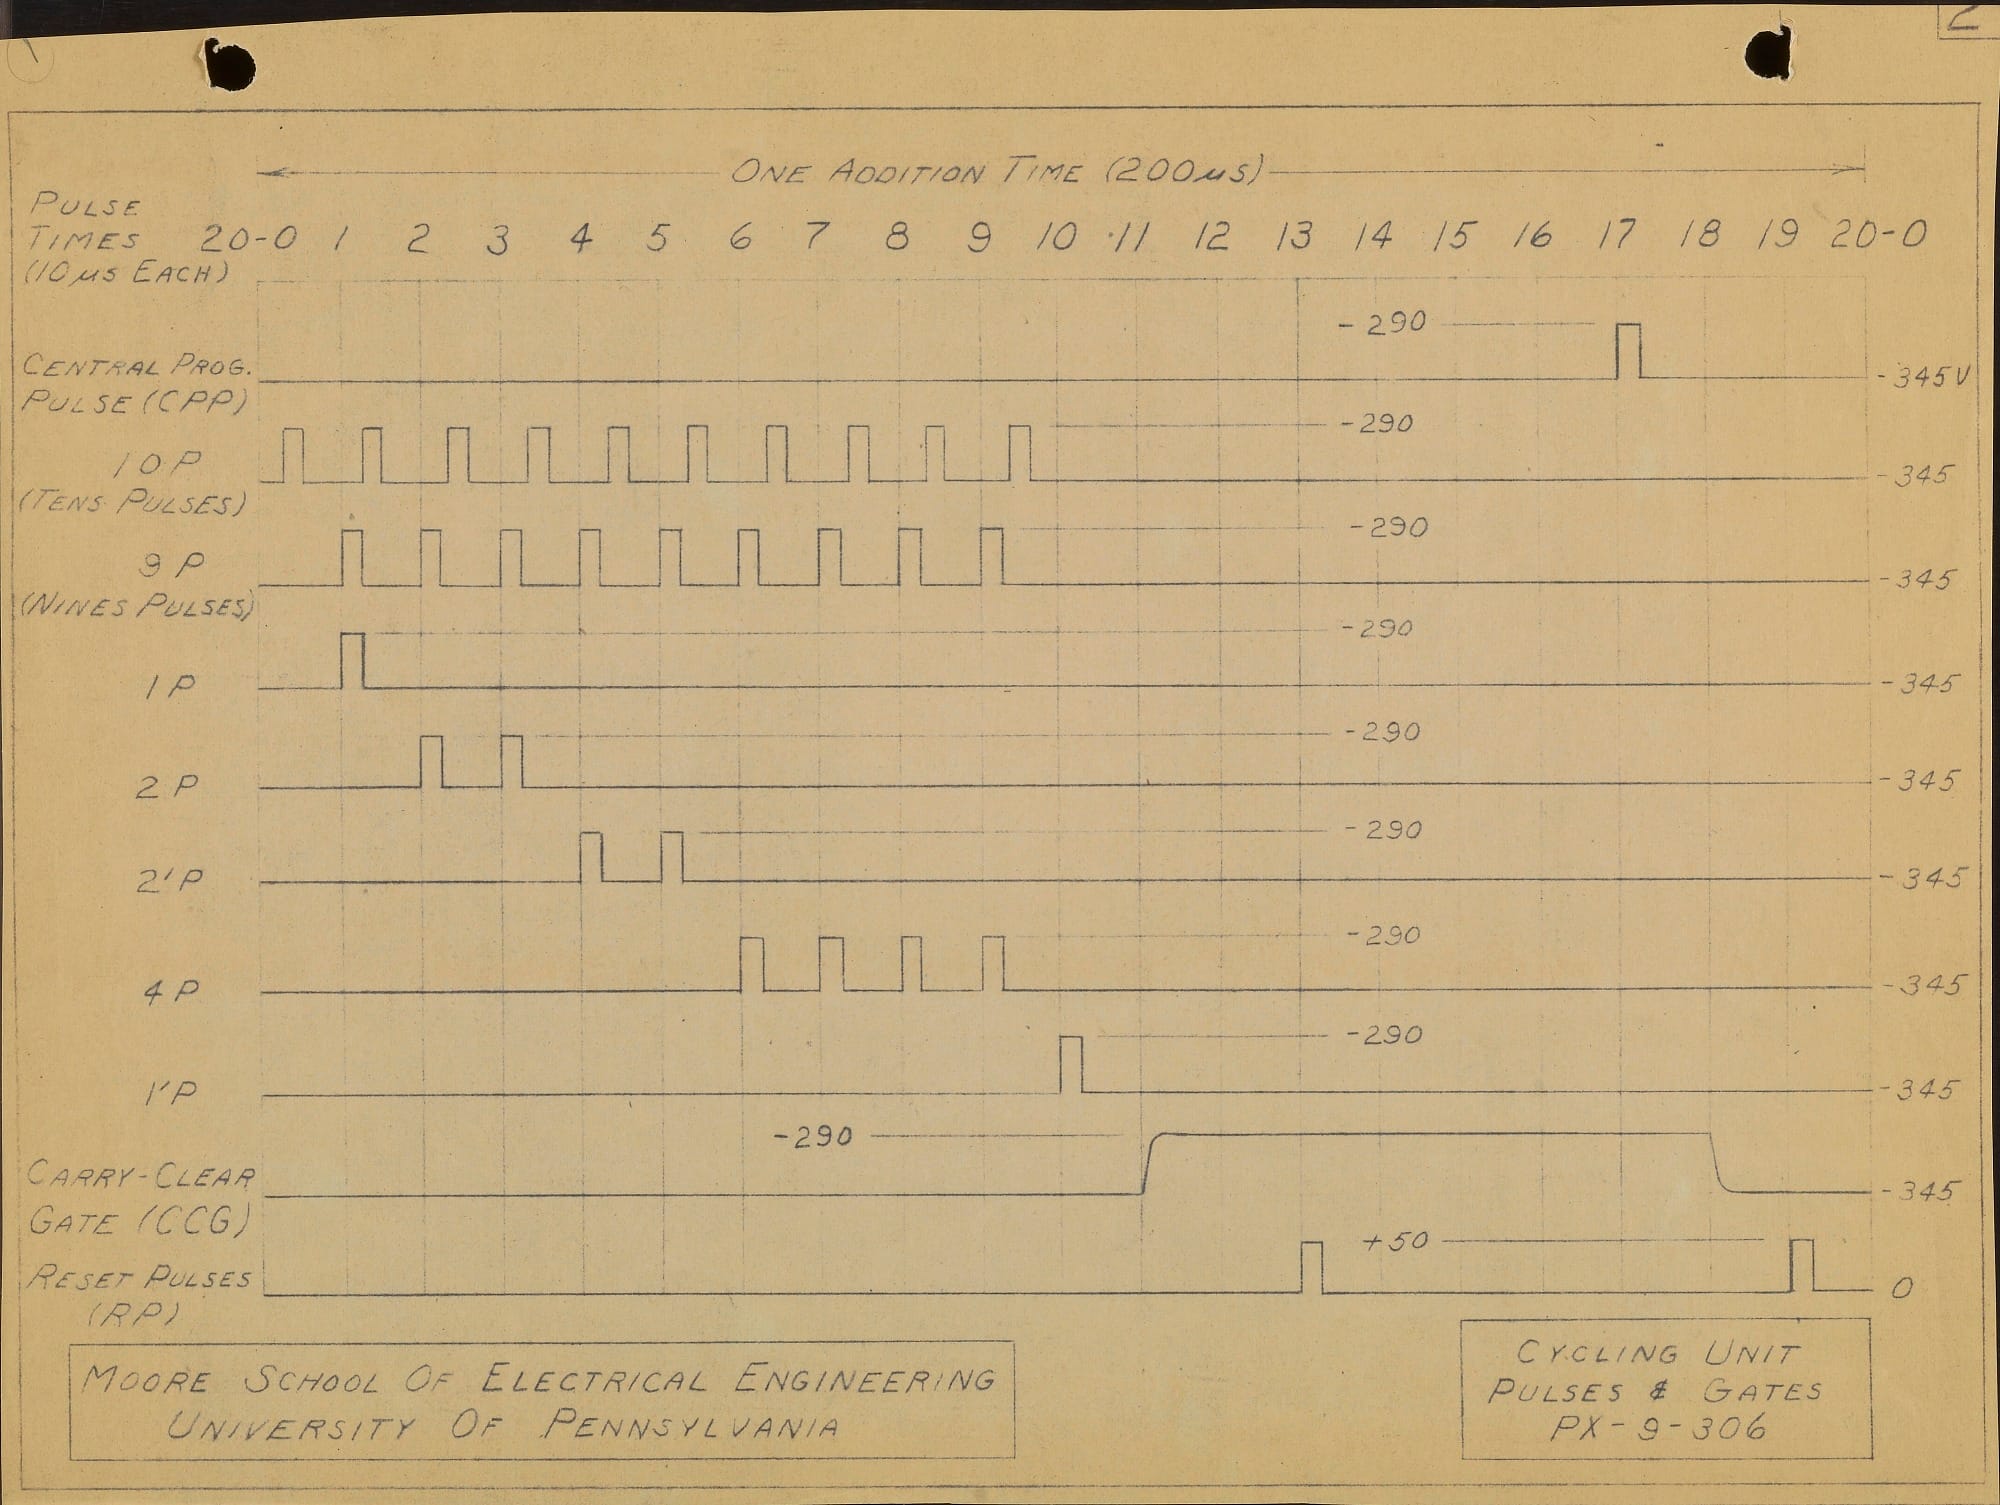 2
ONE ADDITION TIME (200μS)
PULSE
TIMES 20-0 1 2 3 4 5 6 7 8 9 10 11 12 13 14 15 16 17 18 19 20-0
(10μS EACH)
-290
CENTRAL PROG. -345V
PULSE (CPP)
-290
10P -345
(TENS PULSES)
-290
9P -345
(NINES PULSES)
-290
1P -345
-290
2P -345
-290
2'P -345
-290
4P -345
-290
1'P -345
-290
CARRY-CLEAR -345
GATE (CCG)
+50
RESET PULSES 0
(RP)
MOORE SCHOOL OF ELECTRICAL ENGINEERING
UNIVERSITY OF PENNSYLVANIA
CYCLING UNIT
PULSES & GATES
PX-9-306